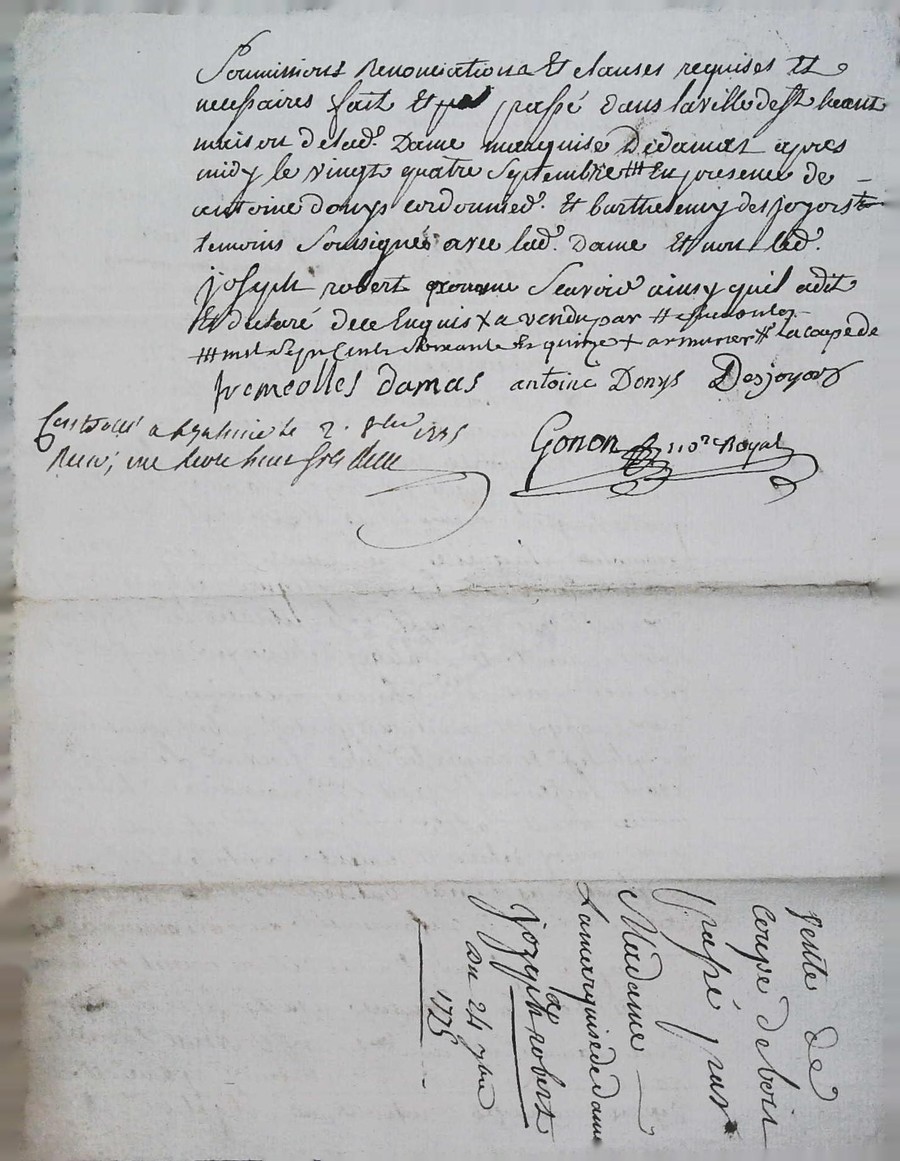 Soumissions Renonciations Et clauses requises Et
necessaires fait Et passé dans la ville de st heant
maison de lad.e Dame marquise De damas apres
midy le vingt quatre Septembre ## En presence de
antoine donys cordonnier. Et barthelemy desjoyors
temoins Sousignés avec lad.e Dame Et non led.
joseph robert pour ne Scavoir ainsy quil a dit
Et declaré de ce Enquis x a vendu par #
### mil sept cents soixante Et quinze + armurier # la coupe de
fremeolles damas antoine Donys Desjoyors
Gonon no.re Royal
le 2. 8bre 1775
vente de
Coupe de bois
passé par
Madame
La marquise de damas
a
joseph robert
Du 24 7bre
1775